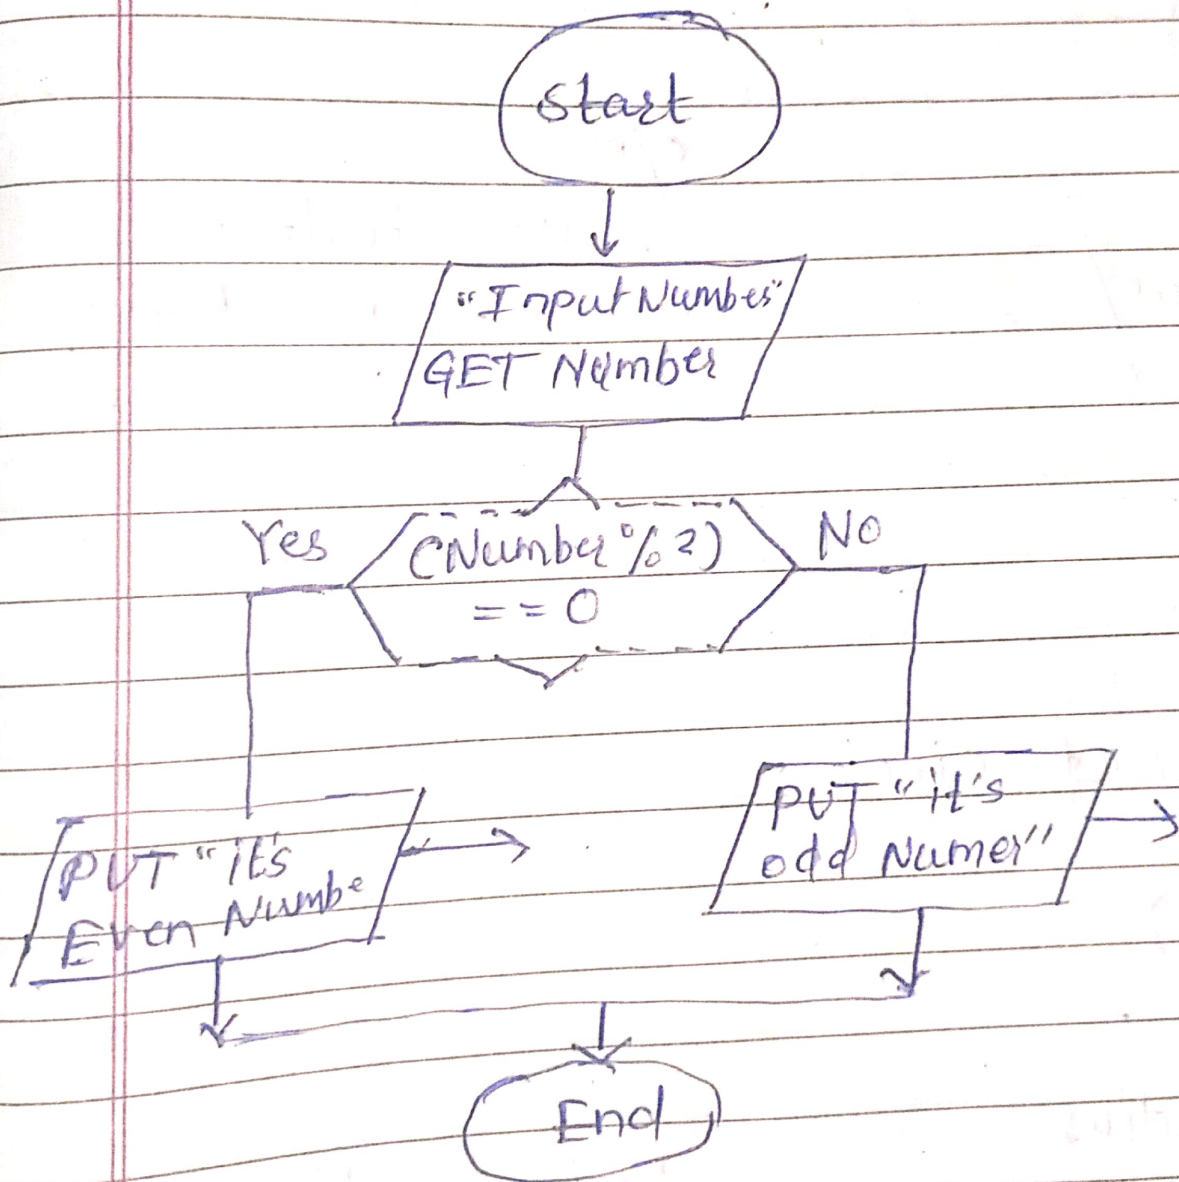 Start
"Input Number"
GET Number
Yes
(Number % 2)
== 0
No
PUT "it's
Even Numbe
PUT "it's
odd Numer"
End